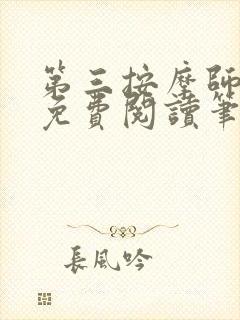 第三按摩師
免費閱讀筆
長風吟